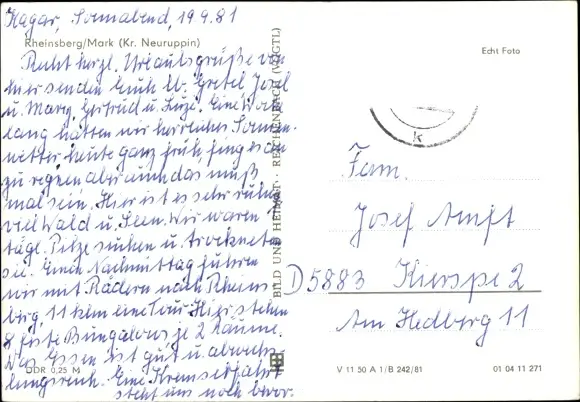 Kagar, Sonnabend, 19.9.81
Rheinsberg/Mark (Kr. Neuruppin)
Recht herzl. Urlaubsgrüße von
hier senden Euch lb. Gretel, Josef
u. Mary, Gertrud u. Eine Woche
lang hatten wir herrliches Sonnen-
wetter heute ganz früh fing es an
zu regnen aber auch das muß
mal sein. Hier ist es sehr ruhig
viel Wald u. Seen. Wir waren
täge. Pilze suchen u. trockneten
sie. Einen Nachmittag fuhren
wir mit Rädern nach Rheins-
berg, 11 km eine Tour. Hier stehen
8 feste Bungalows je 2 Räume.
Das Essen ist gut u. abwechs-
lungsreich. Eine Kremserfahrt
steht uns noch bevor.
DDR 0,25 M
BILD UND HEIMAT · REICHENBACH (VOGTL)
Echt Foto
k
Fam.
Josef
D 5883 Kierspe 2
Am Hedberg 11
V 11 50 A 1/B 242/81 01 04 11 271